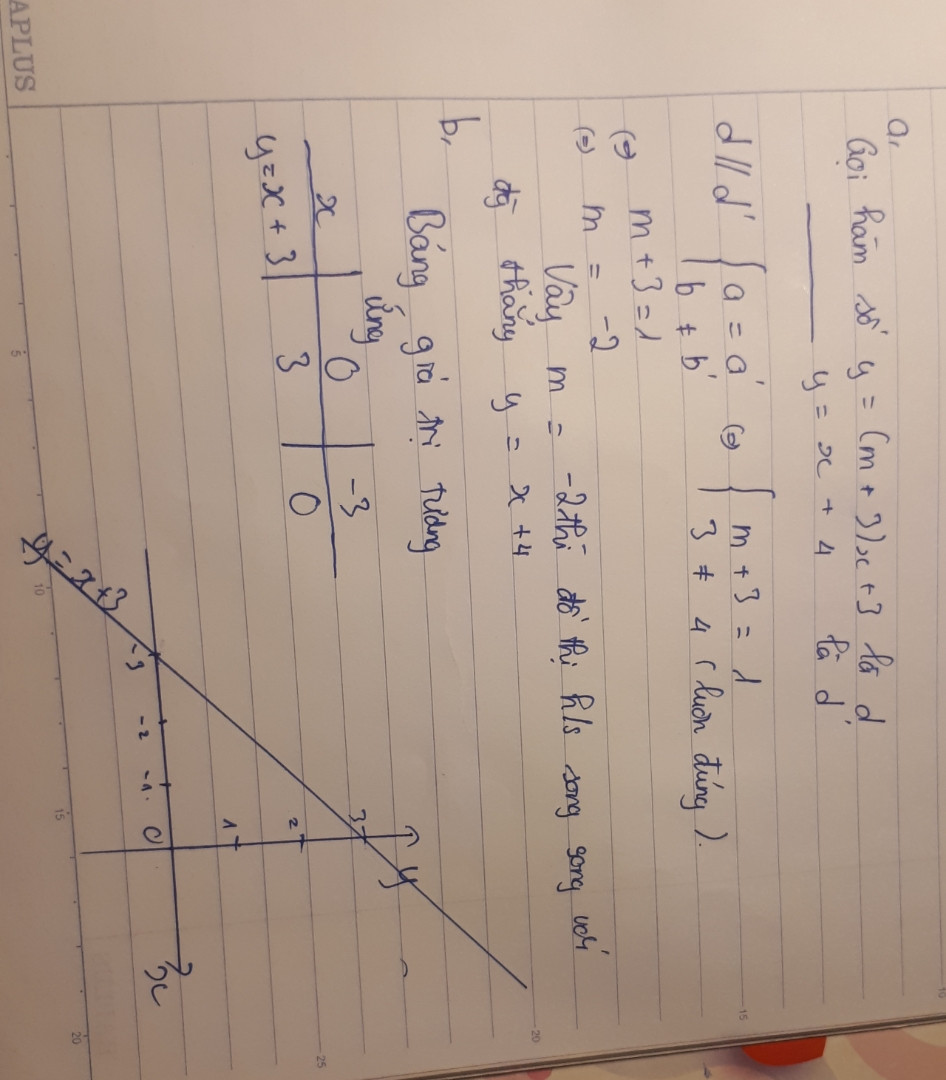 a,
Gọi hàm số y = (m + 3)x + 3 là d
y = x + 4 là d'
d // d' { a = a' b ≠ b' (=) { m + 3 = 1 3 ≠ 4 (luôn đúng).
(=) m + 3 = 1
(=) m = -2
Vậy m = -2 thì đồ thị h/s song song với
đg thẳng y = x + 4
b,
Bảng giá trị tương
ứng
x 0 -3
y = x + 3 3 0
y
3
2
1
-3 -2 -1 0 x
y = x + 3
APLUS
5
10
15
20
10
15
20
25